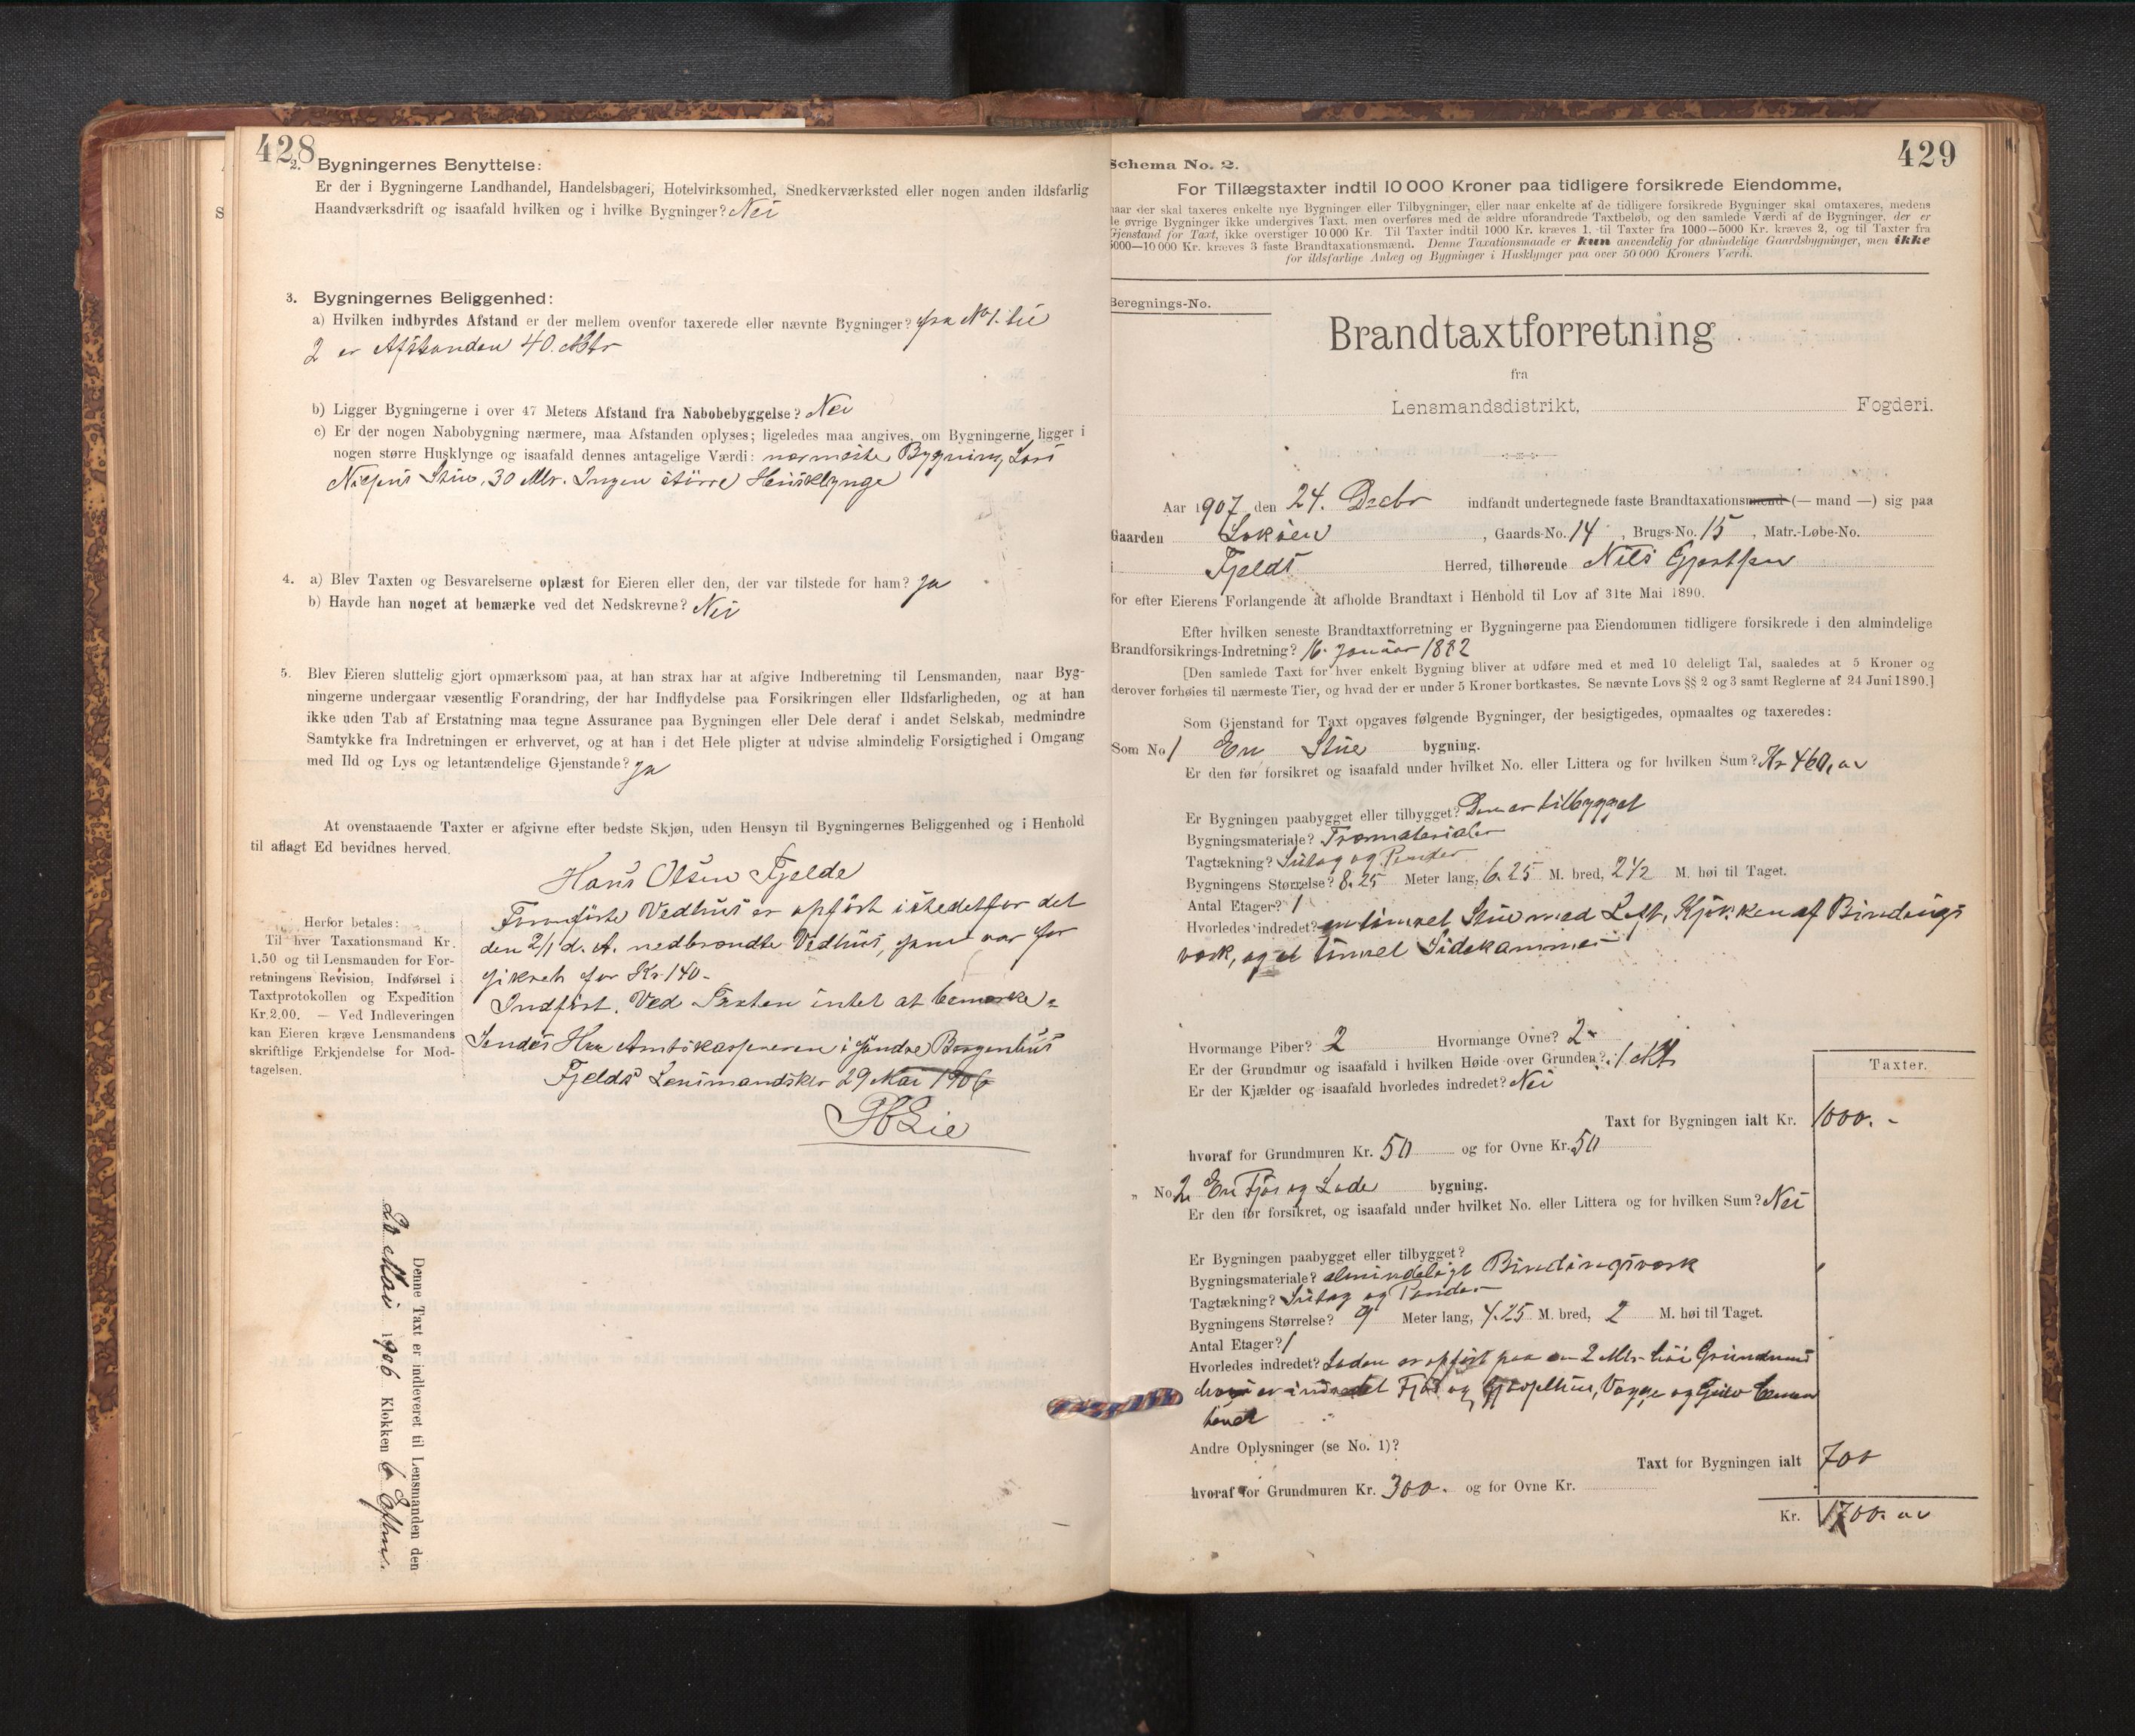 428
2. Bygningernes Benyttelse:
Er der i Bygningerne Landhandel, Handelsbageri, Hotelvirksomhed, Snedkerværksted eller nogen anden ildsfarlig
Haandværksdrift og isaafald hvilken og i hvilke Bygninger? Nei
3. Bygningernes Beliggenhed:
a) Hvilken indbyrdes Afstand er der mellem ovenfor taxerede eller nævnte Bygninger? fra No 1. til
2 er Afstanden 40. Mtr
b) Ligger Bygningerne i over 47 Meters Afstand fra Nabobebyggelse? Nei
c) Er der nogen Nabobygning nærmere, maa Afstanden oplyses; ligeledes maa angives, om Bygningerne ligger i
nogen større Husklynge og isaafald dennes antagelige Værdi: nærmeste Bygning Lars
Stue, 30 Mtr. Ingen större Husklynge
4. a) Blev Taxten og Besvarelserne oplæst for Eieren eller den, der var tilstede for ham? Ja
b) Havde han noget at bemærke ved det Nedskrevne? Nei
5. Blev Eieren sluttelig gjort opmærksom paa, at han strax har at afgive Indberetning til Lensmanden, naar Byg-
ningerne undergaar væsentlig Forandring, der har Indflydelse paa Forsikringen eller Ildsfarligheden, og at han
ikke uden Tab af Erstatning maa tegne Assurance paa Bygningen eller Dele deraf i andet Selskab, medmindre
Samtykke fra Indretningen er erhvervet, og at han i det Hele pligter at udvise almindelig Forsigtighed i Omgang
med Ild og Lys og letantændelige Gjenstande? Ja
At ovenstaaende Taxter er afgivne efter bedste Skjøn, uden Hensyn til Bygningernes Beliggenhed og i Henhold
til aflagt Ed bevidnes herved.
Hans Olsen Fjelde
Herfor betales:
Til hver Taxationsmand Kr.
1.50 og til Lensmanden for For-
retningens Revision, Indførsel i
Taxtprotokollen og Expedition
Kr. 2.00. — Ved Indleveringen
kan Eieren kræve Lensmandens
skriftlige Erkjendelse for Mod-
tagelsen.
Vedhus er opfört istedetfor det
den 2/1 d. A. nedbrændte Vedhus, som var for
sikret for Kr. 140.-
Indfört. Ved Taxten intet at bemærke.
Sendes Hr. Amtskassereren i Söndre Bergenhus
Fjelds Lensmandsktr 29 Mai 1906
Lie
Denne Taxt er indleveret til Lensmanden den
Mai 1906 Klokken 6 Eftm.
429
Schema No. 2.
For Tillægstaxter indtil 10 000 Kroner paa tidligere forsikrede Eiendomme,
naar der skal taxeres enkelte nye Bygninger eller Tilbygninger, eller naar enkelte af de tidligere forsikrede Bygninger skal omtaxeres, medens
de øvrige Bygninger ikke undergives Taxt, men overføres med de ældre uforandrede Taxtbeløb, og den samlede Værdi af de Bygninger, der er
Gjenstand for Taxt, ikke overstiger 10 000 Kr. Til Taxter indtil 1000 Kr. kræves 1, til Taxter fra 1000—5000 Kr. kræves 2, og til Taxter fra
5000—10 000 Kr. kræves 3 faste Brandtaxationsmænd. Denne Taxationsmaade er kun anvendelig for almindelige Gaardsbygninger, men ikke
for ildsfarlige Anlæg og Bygninger i Husklynger paa over 50 000 Kroners Værdi.
Beregnings-No.
Brandtaxtforretning
fra
Lensmandsdistrikt, Fogderi.
Aar 1907 den 24. Decbr indfandt undertegnede faste Brandtaxationsmænd (— mand —) sig paa
Gaarden Loköen, Gaards-No. 14, Brugs-No. 15, Matr.-Løbe-No.
i Fjelds Herred, tilhørende Nils Gjertsen
for efter Eierens Forlangende at afholde Brandtaxt i Henhold til Lov af 31te Mai 1890.
Efter hvilken seneste Brandtaxtforretning er Bygningerne paa Eiendommen tidligere forsikrede i den almindelige
Brandforsikrings-Indretning? 16. Januar 1882
[Den samlede Taxt for hver enkelt Bygning bliver at udføre med et med 10 deleligt Tal, saaledes at 5 Kroner og
derover forhøies til nærmeste Tier, og hvad der er under 5 Kroner bortkastes. Se nævnte Lovs §§ 2 og 3 samt Reglerne af 24 Juni 1890.]
Som Gjenstand for Taxt opgaves følgende Bygninger, der besigtigedes, opmaaltes og taxeredes:
Som No 1 En Stue bygning.
Er den før forsikret og isaafald under hvilket No. eller Littera og for hvilken Sum? Kr 460,00
Er Bygningen paabygget eller tilbygget? Den er tilbygget
Bygningsmateriale? Træmaterialer
Tagtækning? Sutag og Pander
Bygningens Størrelse? 8.25 Meter lang, 6.25 M. bred, 2 1/2 M. høi til Taget.
Antal Etager? 1
Hvorledes indredet? en tömret Stue med Loft, Kjökken af Bindings
værk, og et tömret Sidekammer
Hvormange Piber? 2 Hvormange Ovne? 2
Er der Grundmur og isaafald i hvilken Høide over Grunden? 1 Mtr
Er der Kjælder og isaafald hvorledes indredet? Nei
Taxter.
Taxt for Bygningen ialt Kr. 1000.-
hvoraf for Grundmuren Kr. 50 og for Ovne Kr. 50
" No 2 En Fjös og Lade bygning.
Er den før forsikret, og isaafald under hvilket No. eller Littera og for hvilken Sum? Nei
Er Bygningen paabygget eller tilbygget?
Bygningsmateriale? almindeligt Bindingsværk
Tagtækning? Sutag og Pander
Bygningens Størrelse? 9 Meter lang, 4.25 M. bred, 2 M. høi til Taget.
Antal Etager? 1
Hvorledes indredet? Laden er opfört paa en 2 Mtr höi Grundmur
hvori er indredet Fjös og Gjödselhus, Vægge og Gulv cemen
teret
Andre Oplysninger (se No. 1)?
Taxt for Bygningen ialt 700
hvoraf for Grundmuren Kr. 300. og for Ovne Kr.
Kr. 1700.00